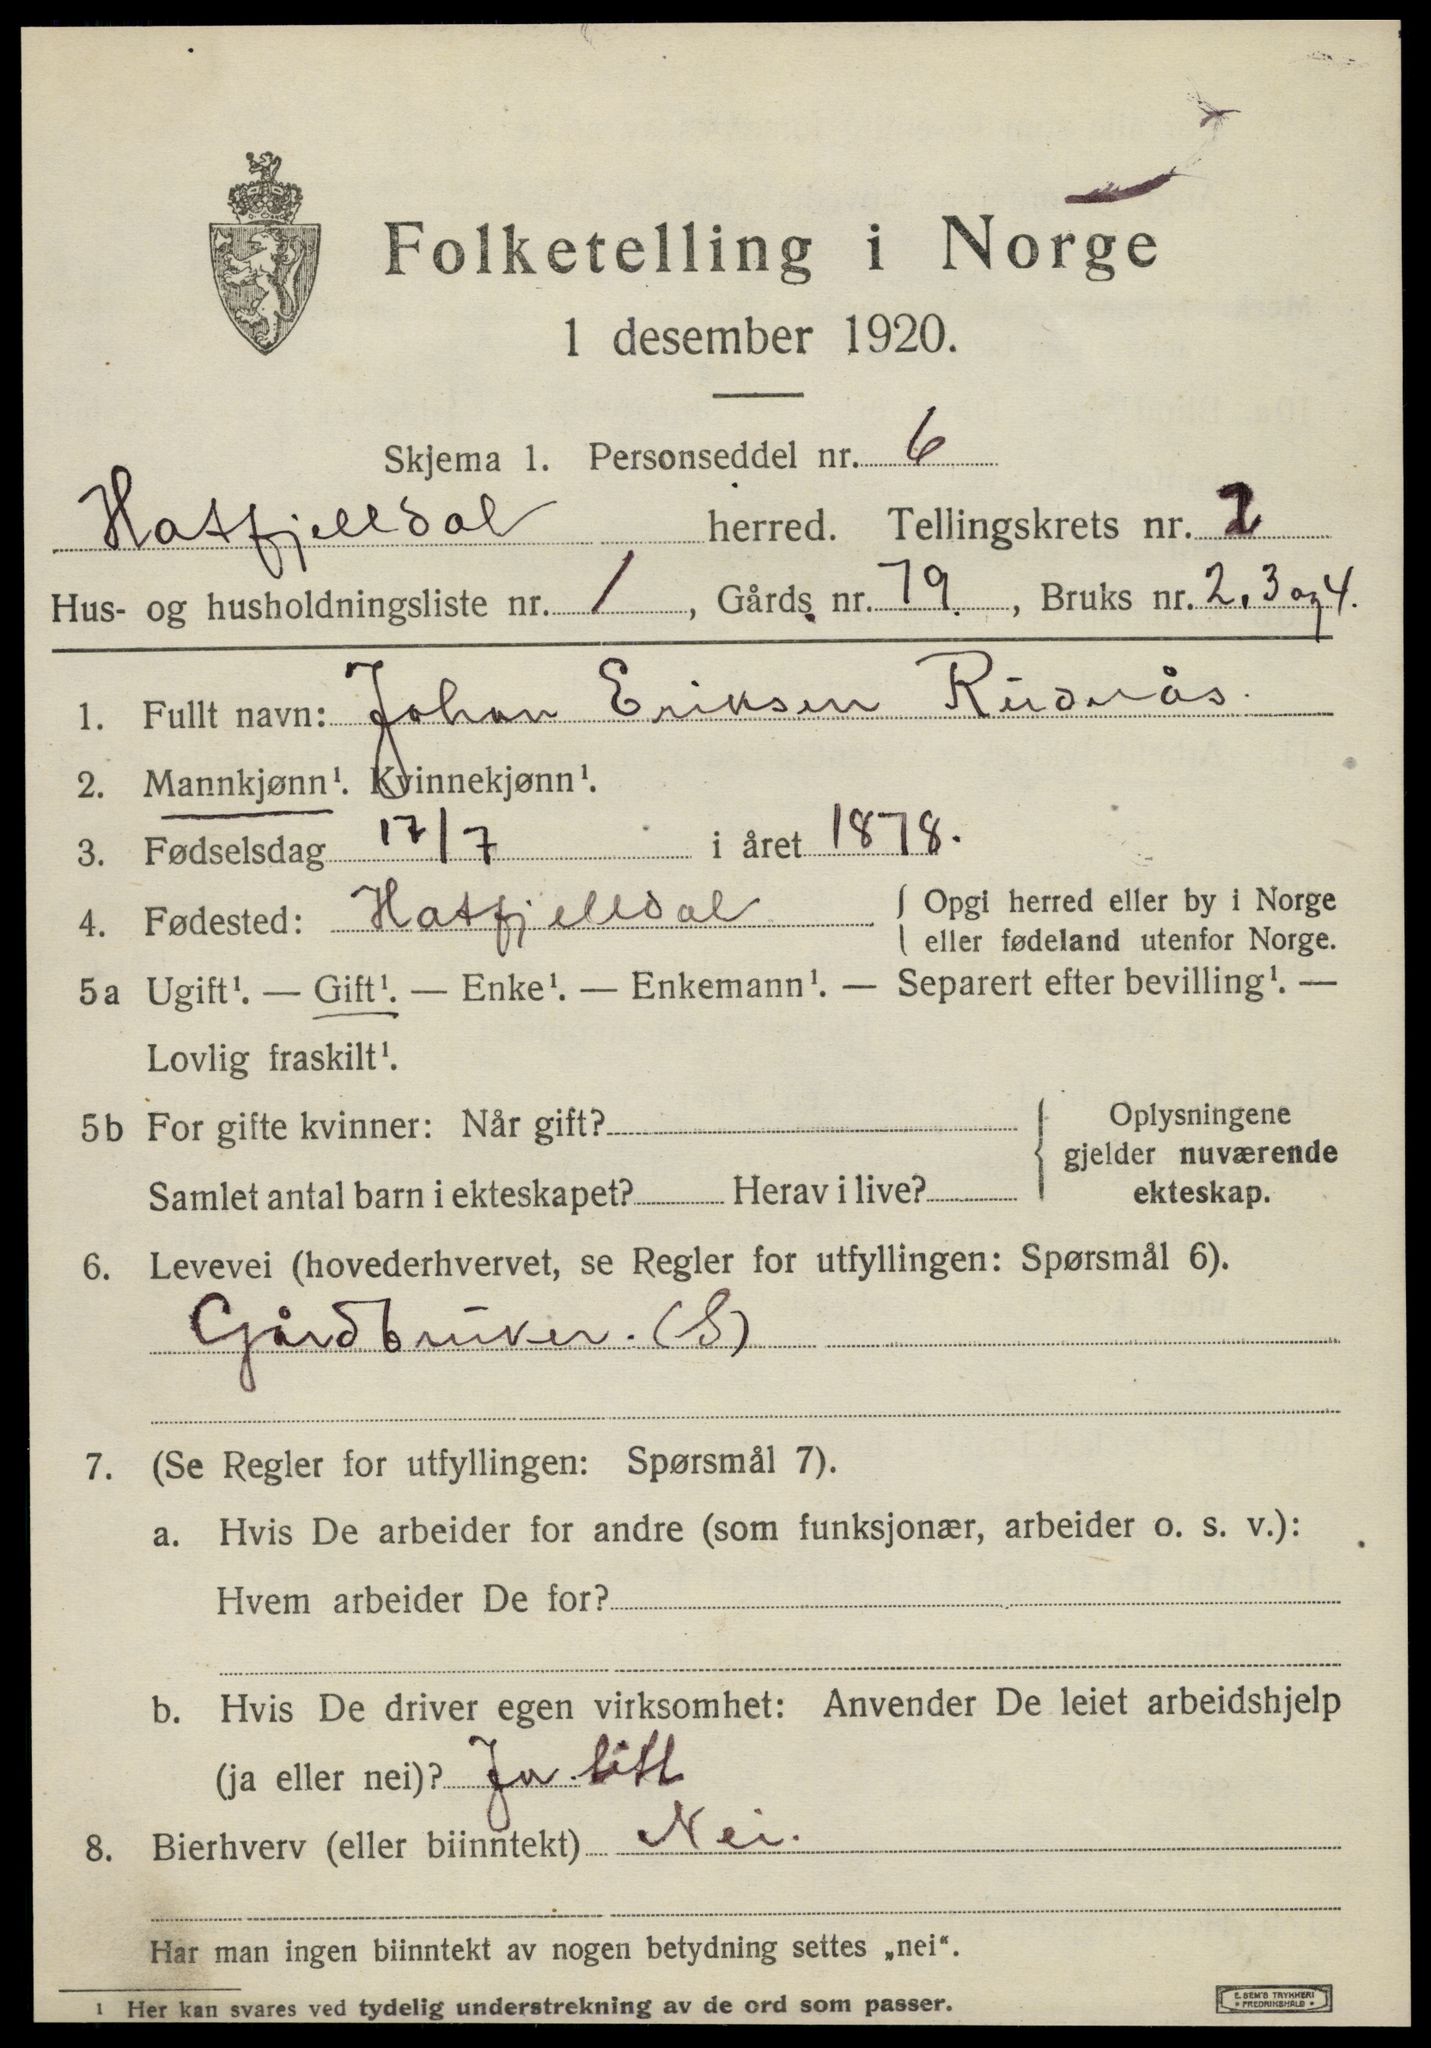 Folketelling i Norge
1 desember 1920.
Skjema 1. Personseddel nr. 6
Hatfjelldal herred. Tellingskrets nr. 2
Hus- og husholdningsliste nr. 1, Gårds nr. 79., Bruks nr. 2, 3 og 4.
1. Fullt navn: Johan Eriksen
2. Mannkjønn¹. Kvinnekjønn¹.
3. Fødselsdag 17/7 i året 1878.
4. Fødested: Hatfjelldal { Opgi herred eller by i Norge
eller fødeland utenfor Norge.
5a Ugift¹. — Gift¹. — Enke¹. — Enkemann¹. — Separert efter bevilling¹. —
Lovlig fraskilt¹.
5b For gifte kvinner: Når gift? { Oplysningene
gjelder nuværende
Samlet antal barn i ekteskapet? Herav i live? ekteskap.
6. Levevei (hovederhvervet, se Regler for utfyllingen: Spørsmål 6).
Gårdbruker. (S)
7. (Se Regler for utfyllingen: Spørsmål 7).
a. Hvis De arbeider for andre (som funksjonær, arbeider o. s. v.):
Hvem arbeider De for?
b. Hvis De driver egen virksomhet: Anvender De leiet arbeidshjelp
(ja eller nei)? Ja litt
8. Bierhverv (eller biinntekt) Nei.
Har man ingen biinntekt av nogen betydning settes „nei“.
¹ Her kan svares ved tydelig understrekning av de ord som passer.
E. SEM'S TRYKKERI
• FREDRIKSHALD •